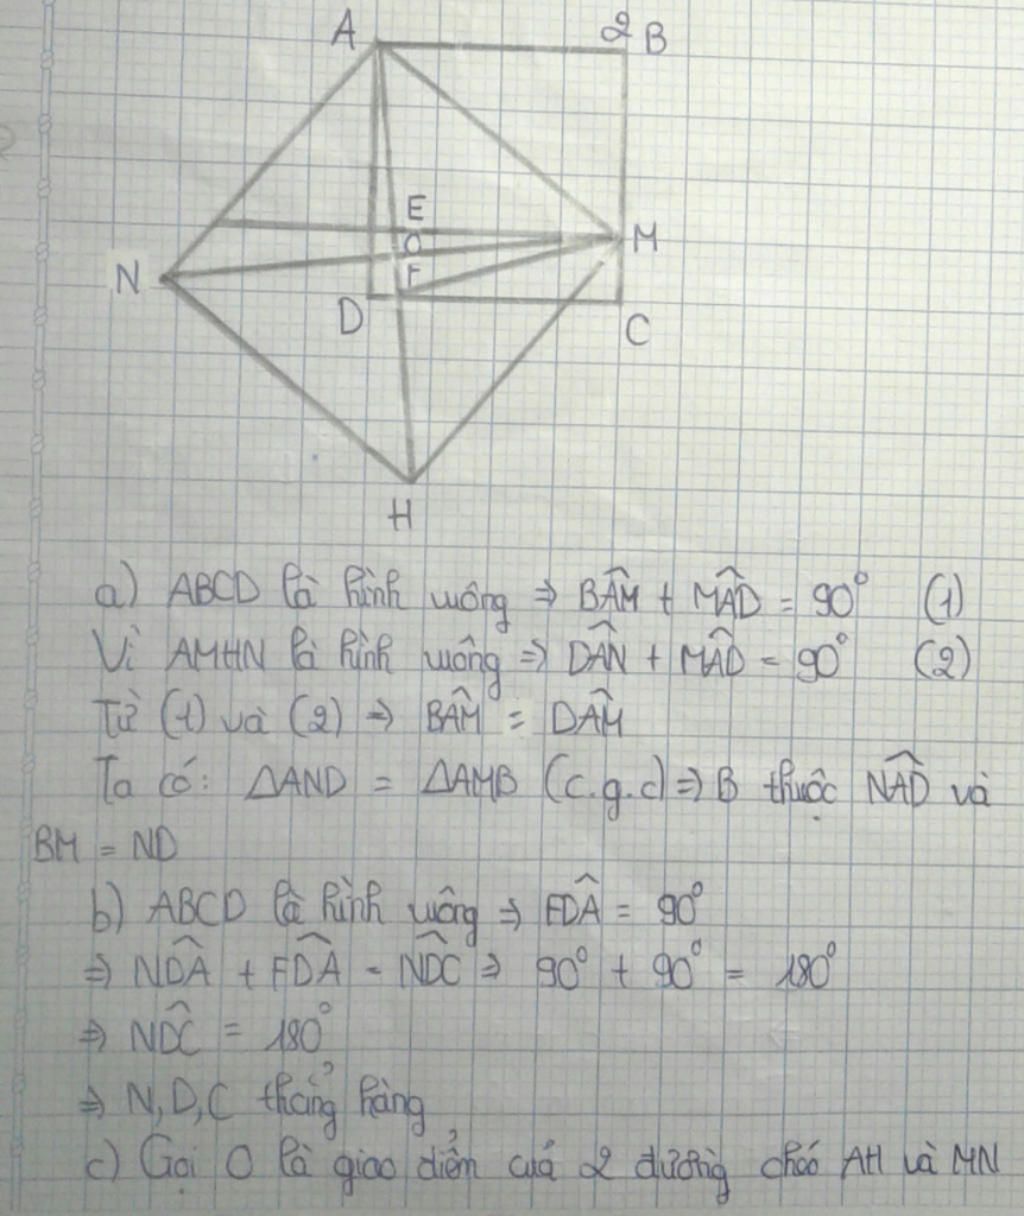 A
2 B
E
O
M
N
F
D
C
H
a) ABCD là hình vuông ⇒ BÂM + MÂD = 90° (1)
Vì AMHN là hình vuông ⇒ DÂN + MÂD = 90° (2)
Từ (1) và (2) ⇒ BÂM = DÂM
Ta có: ΔAND = ΔAMB (c.g.c) ⇒ B thuộc NÂD và
BM = ND
b) ABCD là hình vuông ⇒ FD̂A = 90°
⇒ ND̂A + FD̂A = ND̂C ⇒ 90° + 90° = 180°
⇒ ND̂C = 180°
⇒ N, D, C thẳng hàng
c) Gọi O là giao điểm của 2 đường chéo AH và MN